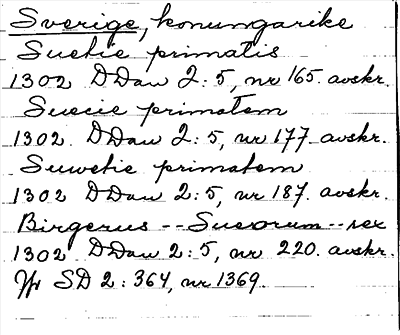 Sverige, konungarike
Suetie primatis
1302 DDan 2:5, nr 165. avskr.
Suecie primatem
1302. DDan 2:5, nr 177. avskr.
Suwetie primatem
1302 DDan 2:5, nr 187. avskr.
Birgerus -- Sueorum -- rex
1302. DDan 2:5, nr 220. avskr.
Jfr SD 2:364, nr 1369.